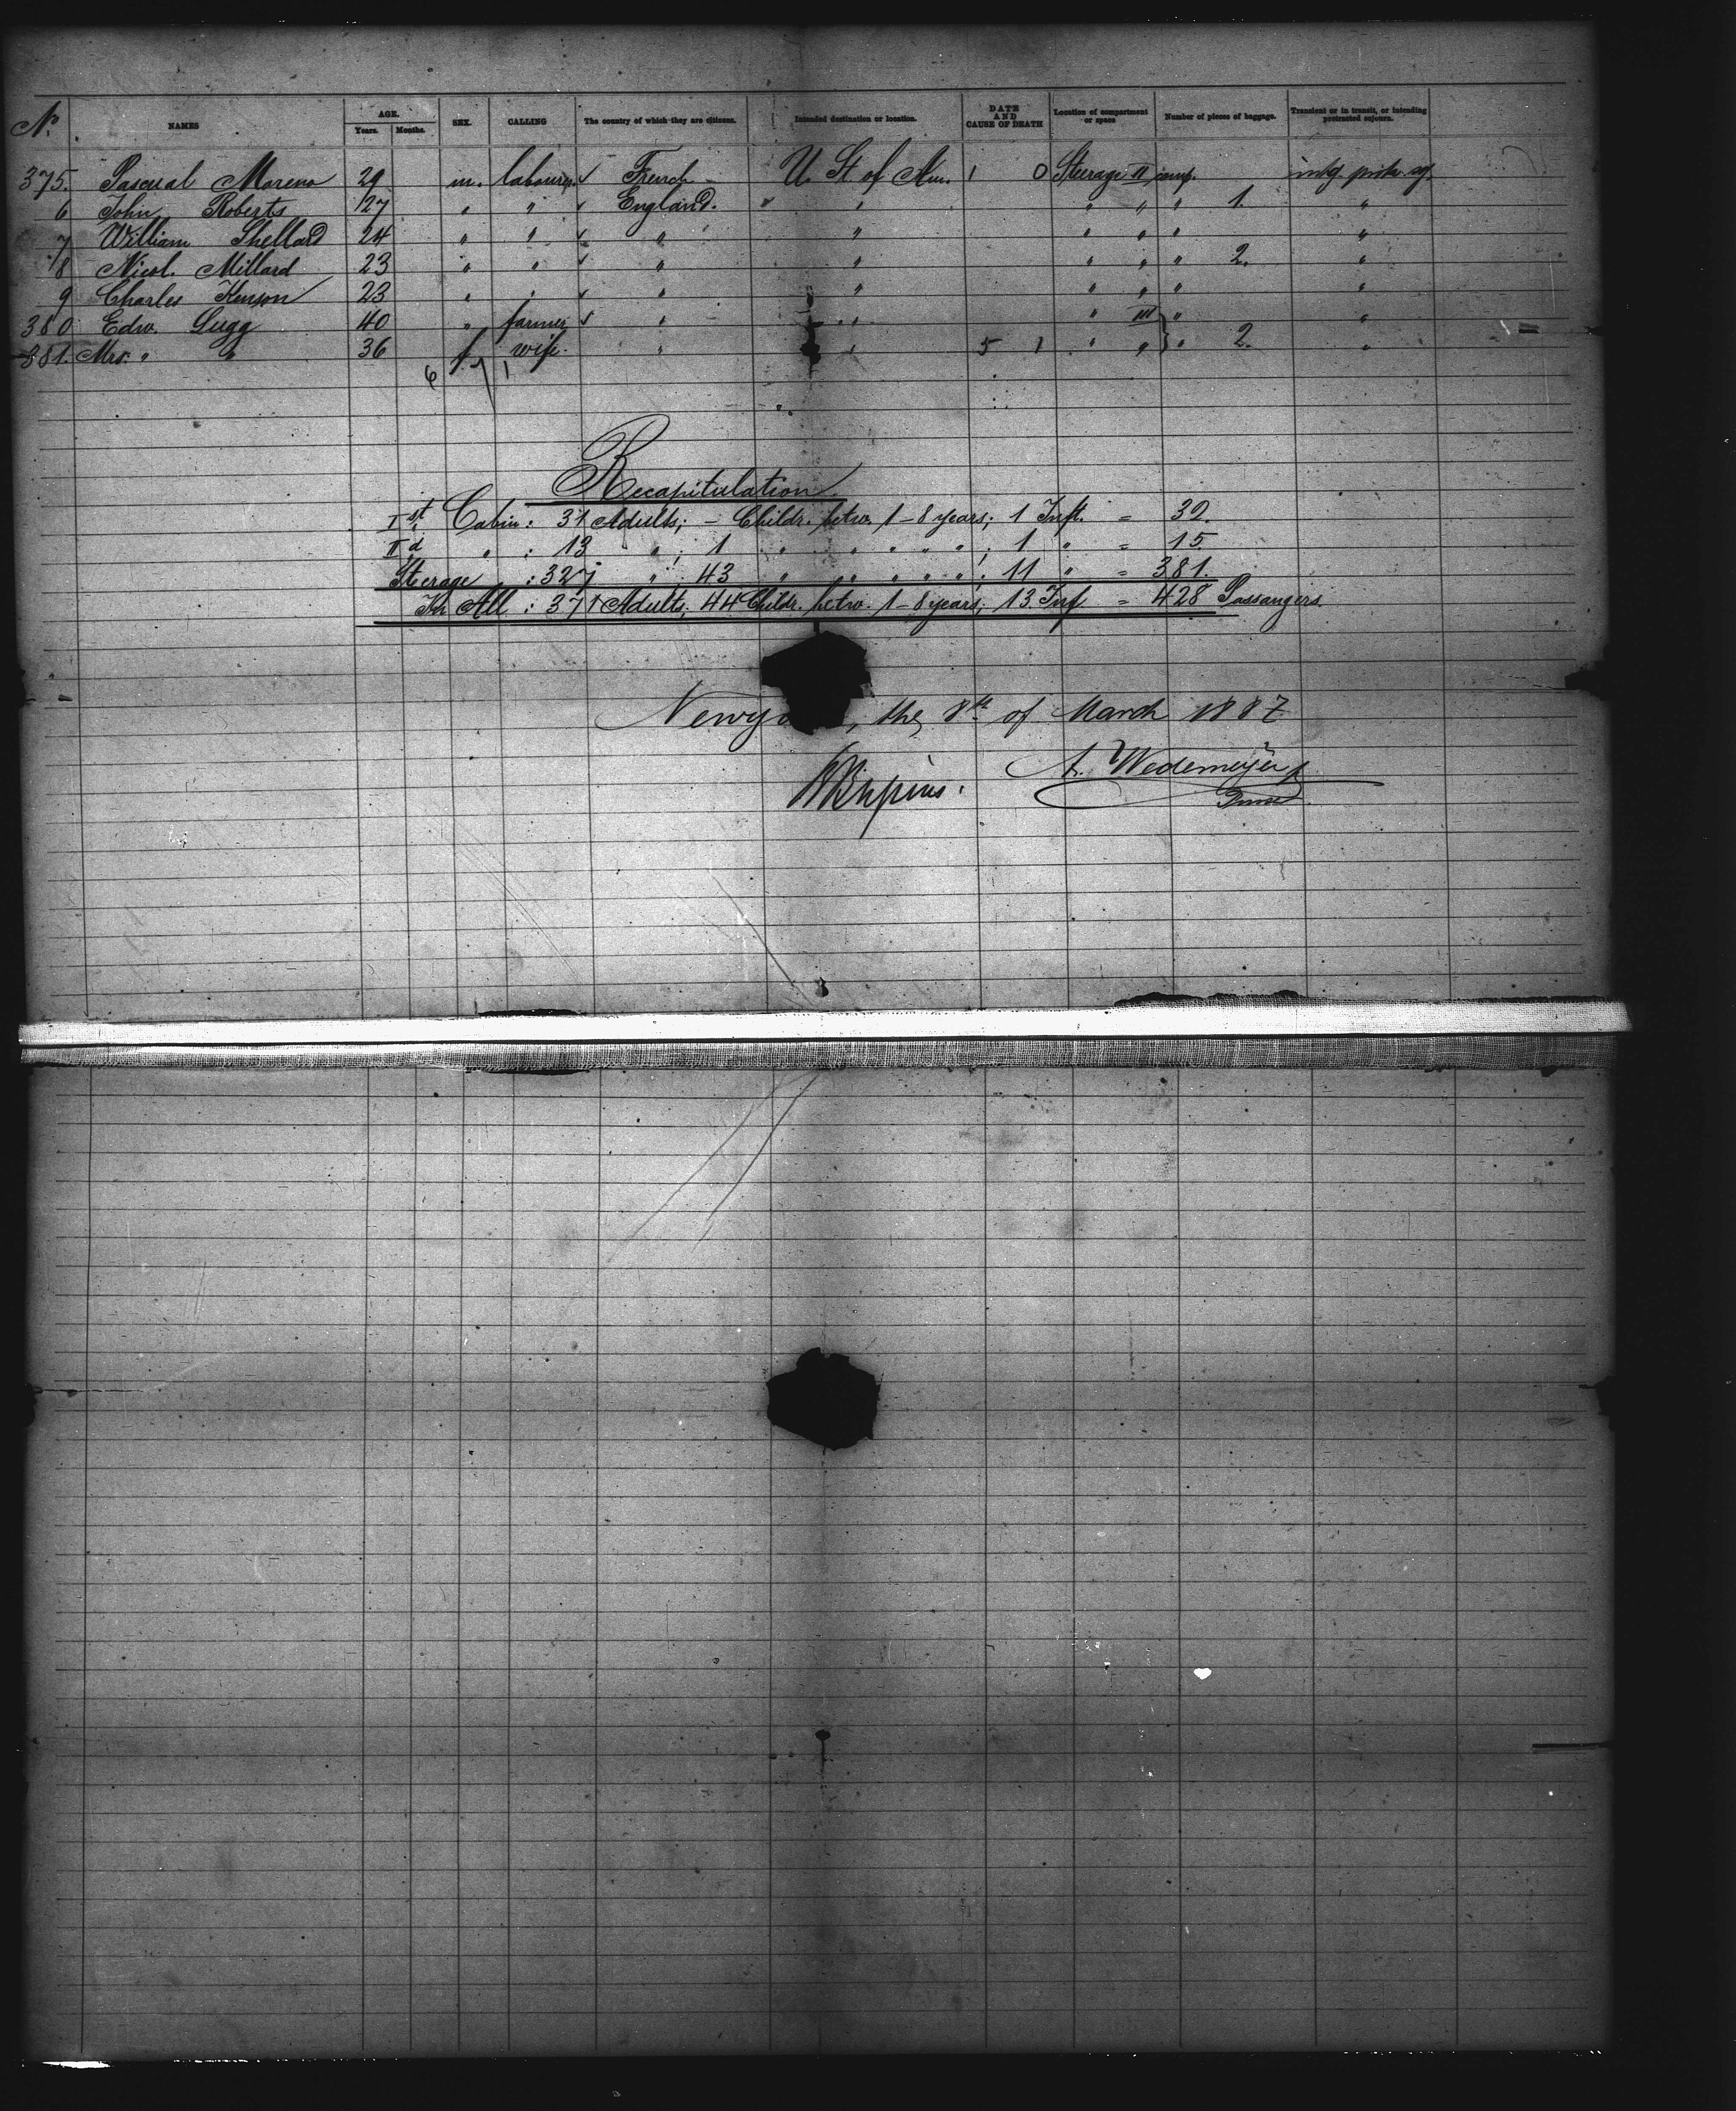 No. NAMES AGE. Years. Months. SEX. CALLING The country of which they are citizens. Intended destination or location. DATE AND CAUSE OF DEATH Location of compartment or space Number of pieces of baggage. Transient or in transit, or intending protracted sojourn.
375. Pascual Moreno 29 m. labourer ✓ French U. St of Am. 1 0 Steerage II comp.
6 John Roberts 27 " " ✓ England. " " " " 1. "
7 William Shellard 24 " " ✓ " " " " " "
8 Nicol. Millard 23 " " ✓ " " " " " 2. "
9 Charles Henson 23 " " ✓ " " " " " "
380 Edw. Sugg 40 " farmer ✓ " " " III " "
381. Mrs. " " 36 f. wife. " " 5 1 " " " 2. "
6 1
Recapitulation.
Ist Cabin: 31 Adults; – Childr. betw. 1–8 years; 1 Inft. = 32.
IId " : 13 " ; 1 " " " " " ; 1 " = 15.
Steerage : 327 " ; 43 " " " " " ; 11 " = 381.
In All : 371 Adults; 44 Childr. betw. 1–8 years; 13 Inf. = 428 Passangers.
the 8th of March 1887
A. Wedemeyer